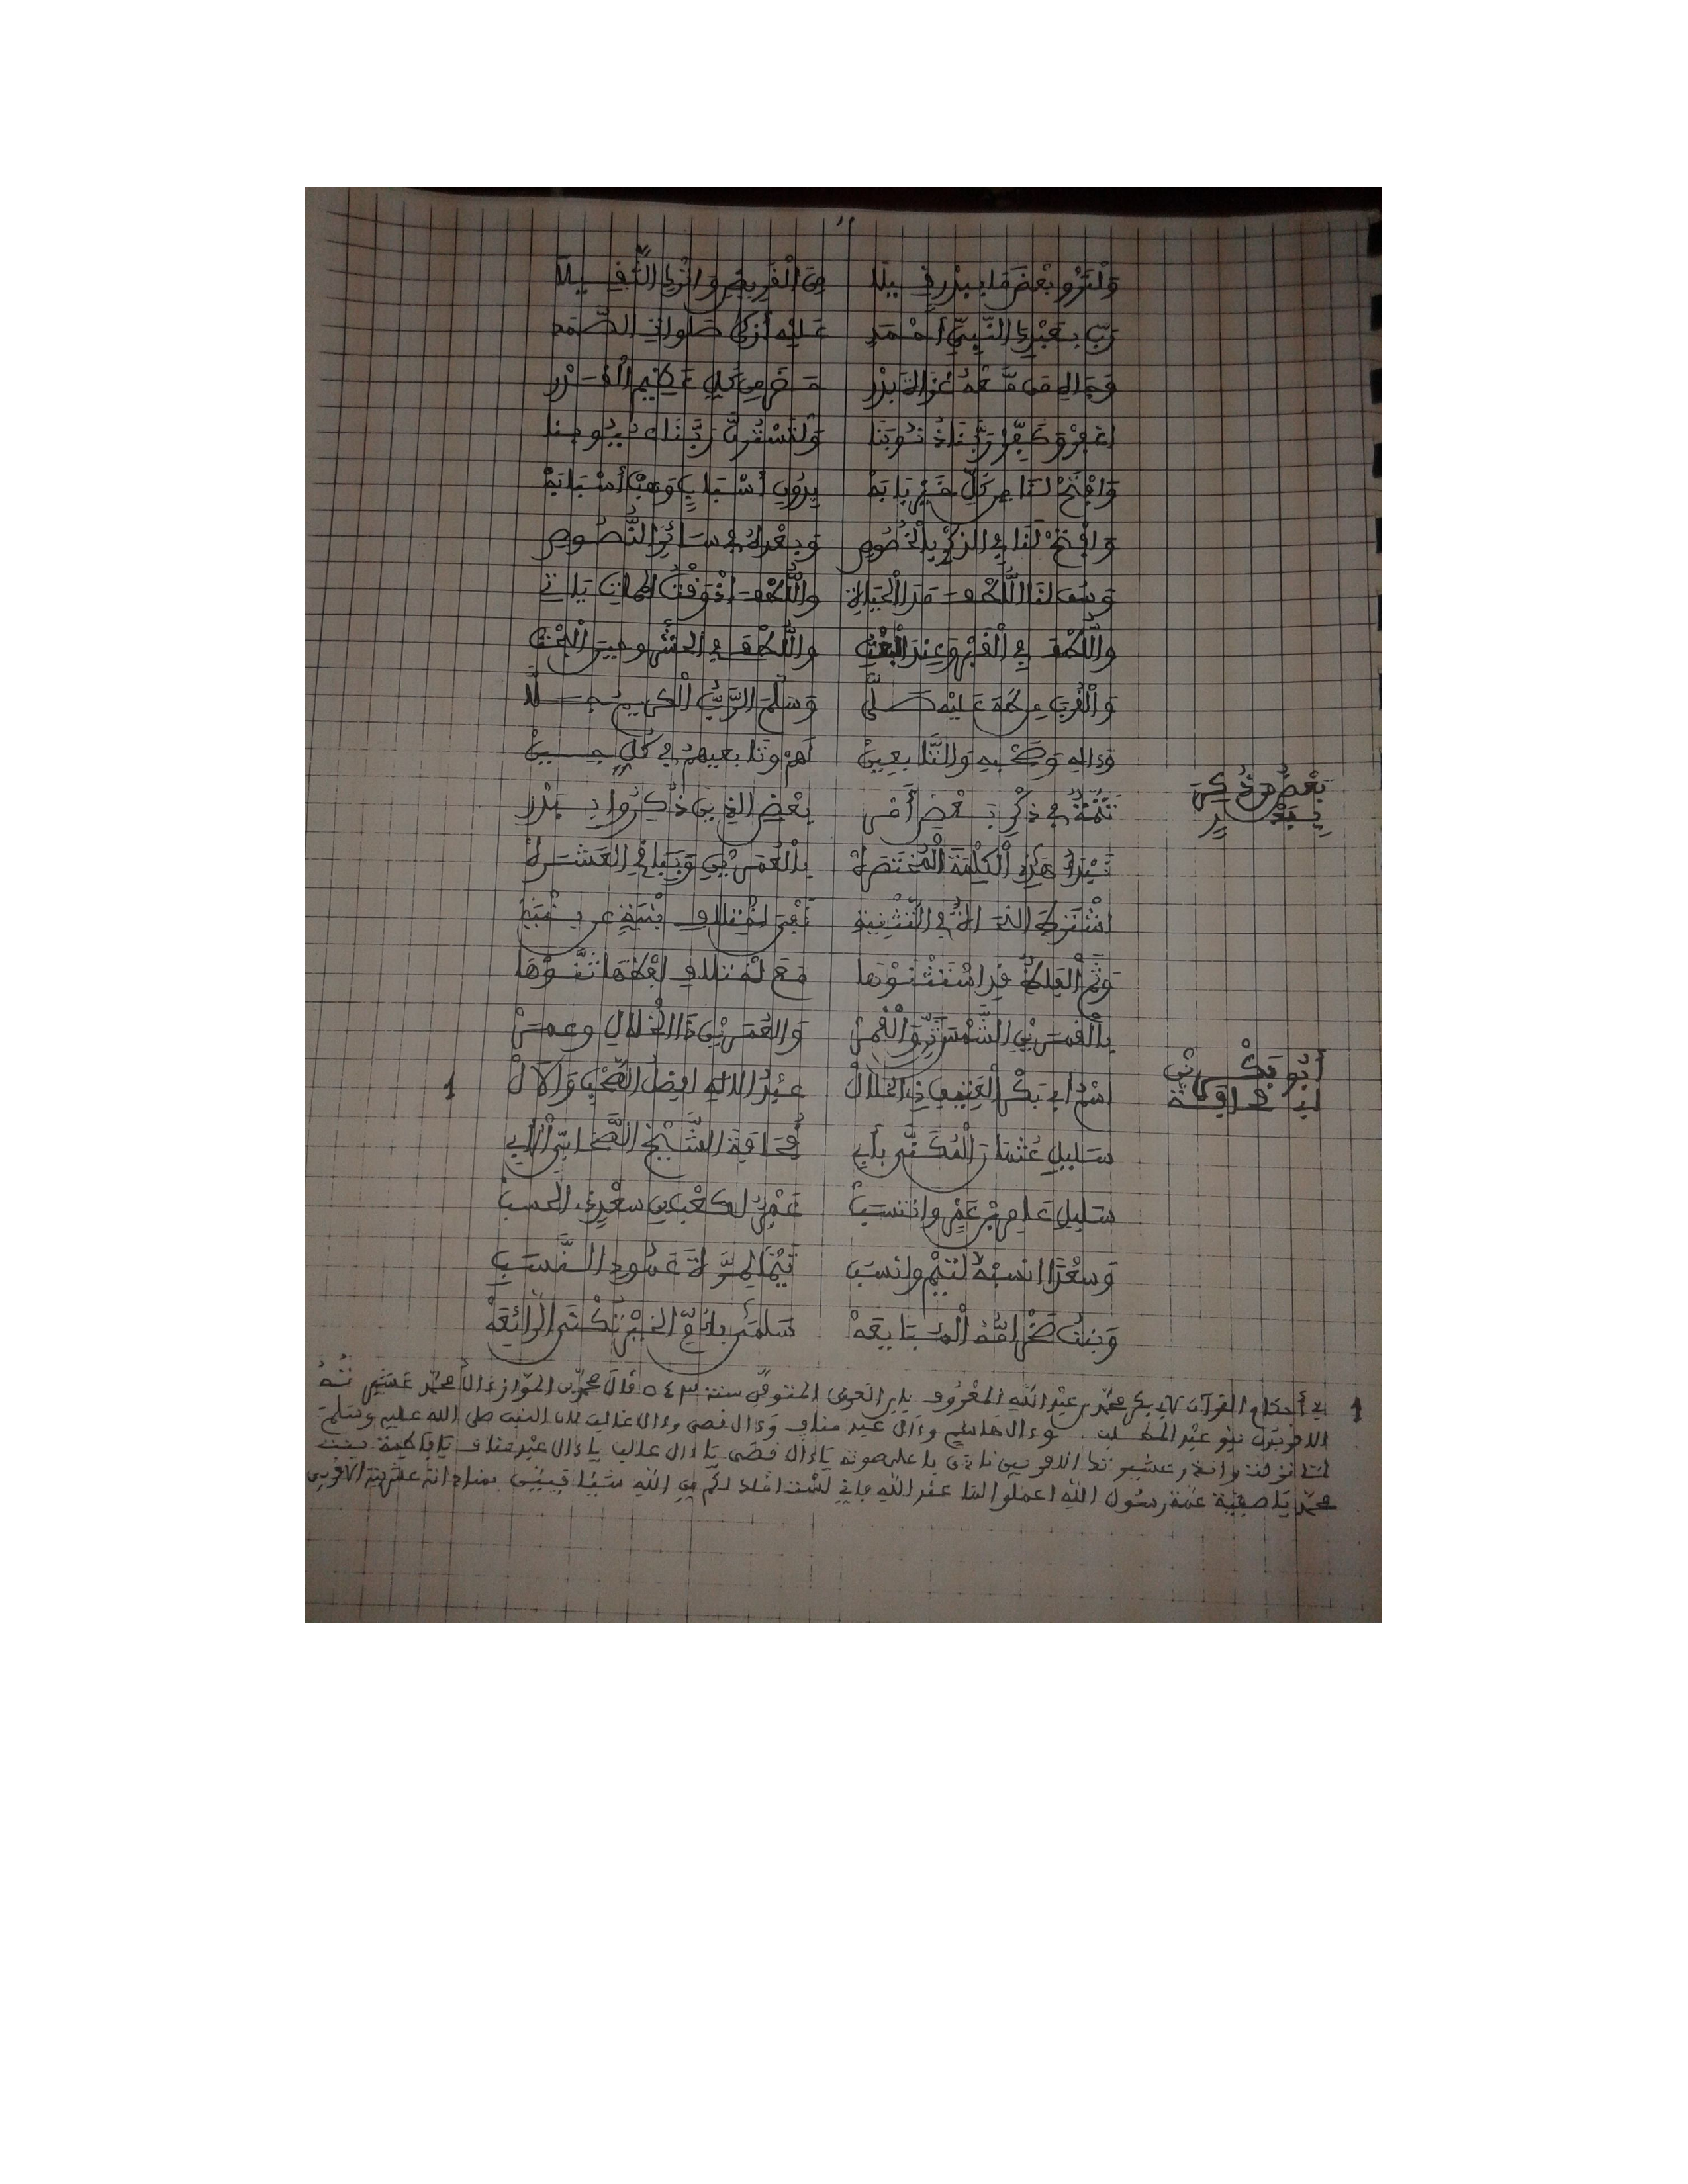 وَلْنَرْوِ بَعْضَ مَا بِبَدْرٍ فِيلَا مِنَ الْقَرِيضِ وَاتْرُكِ الثَّفِيلَا
رَبِّ بِعَبْدِكَ النَّبِيِّ أَحْمَدِ عَلَيْهِ أَزْكَى صَلَوَاتِ الصَّمَدِ
وَجَاهِ مَن مَّعَهُ غَزَاةَ بَدْرِ مِن كُلِّ عَظِيمِ الْقَدْرِ
اغْفِرْ وَكَفِّرْ رَبَّنَا ذُنُوبَنَا وَلْتَسْتُرَنَّ رَبَّنَا عُيُوبَنَا
وَافْتَحْ لَنَا مِن كُلِّ خَيْرٍ بَابَهْ بِدُونِ أَسْبَابٍ وَهَبْ أَسْبَابَهْ
وَافْتَحْ لَنَا فِي الذِّكْرِ بِالْخُصُوصِ وَبَعْدَهُ فِي سَائِرِ النُّصُوصِ
وَهَبْ لَنَا اللُّطْفَ مَدَا الْحَيَاةِ وَاللُّطْفَ إِذْ وَقْتُ الْمَمَاتِ يَاتِي
وَاللُّطْفَ فِي الْقَبْرِ وَعِنْدَ الْبَعْثِ وَاللُّطْفَ فِي الْحَشْرِ وَحِينَ الْبَحْثِ
وَالْقُرْبَ مِن طَهَ عَلَيْهِ صَلَّى وَسَلَّمَ الرَّبُّ الْكَرِيمُ جَلَّا
وَءَالِهِ وَصَحْبِهِ وَالتَّابِعِينْ لَهُمْ وَتَابِعِيهِمْ فِي كُلِّ حِينْ
بَعْضُ مَن ذُكِرَ بِبَدْرٍ
تَتِمَّةٌ فِي ذِكْرِ بَعْضِ أَمْرِ بَعْضِ الذِينَ ذُكِرُوا بِبَدْرِ
نَبْدَأُ هَذِهِ الْكَلِمَةَ الْمُخْتَصَرَهْ بِالْعُمَرَيْنِ وَبِبَاقِي الْعَشَرَهْ
اشْتَرَطَ النُّحَاةُ فِي التَّثْنِيَةِ نَفْيَ اخْتِلَافِ بِنْيَةٍ عَن بِنْيَةِ
وَثَمَّ أَلْفَاظٌ قَدِ اسْتَثْنَوْهَا مَعَ اخْتِلَافِ لَفْظِهَا ثَنَّوْهَا
بِالْقَمَرَيْنِ الشَّمْسَ ثَنِّ وَالْقَمَرْ وَالْعُمَرَيْنِ ذَا الْخِلَالِ وَعُمَرْ
أَبُو بَكْرٍ بْنُ أَبِي قُحَافَةَ
اسْمُ أَبِي بَكْرِ الْعَتِيقِ ذِي الْخِلَالْ عَبْدُ الالَهِ أَفْضَلُ الصَّحْبِ وَالآلْ 1
سَلِيلِ عُثْمَانَ الْمُكَنَّى بِأَبِي قُحَافَةَ الشَّيْخِ الصَّحَابِيِّ الأَبِي
سَلِيلِ عَامِرِ بْنِ عَمْرٍو وَانْتَسَبْ عَمْرٌو لِكَعْبِ بْنِ سَعْدٍ ذِي الْحَسَبْ
وَسَعْدًا انْسُبْهُ لِتَيْمٍ وَانْسُبِ تَيْمًا لِمُرَّةَ عَمُودِ النَّسَبِ
وَبِنْتُ صَخْرٍ أُمُّهُ الْمُبَايِعَهْ سَلْمَى بِأُمِّ الْخَيْرِ تُكْنَى الرَّائِعَهْ
1 في أحكام القرآن لأبي بكر محمد بن عبد الله المعروف بابن العربي المتوفى سنة 543 قال محمد بن المواز ءال محمد عشيرته
الاقربون بنو عبد المطلب وءال هاشم وءال عبد مناف وءال قصي وءال غالب لان النبي صلى الله عليه وسلم
لما نزلت وانذر عشيرتك الاقربين نادى با على صوته يا ءال قصي يا ءال غالب يا ءال عبد مناف يا فاطمة بنت
محمد يا صفية عمة رسول الله اعملوا لما عند الله فإني لست املك لكم من الله شيئا فبين بمناداته عشيرته الاقربين